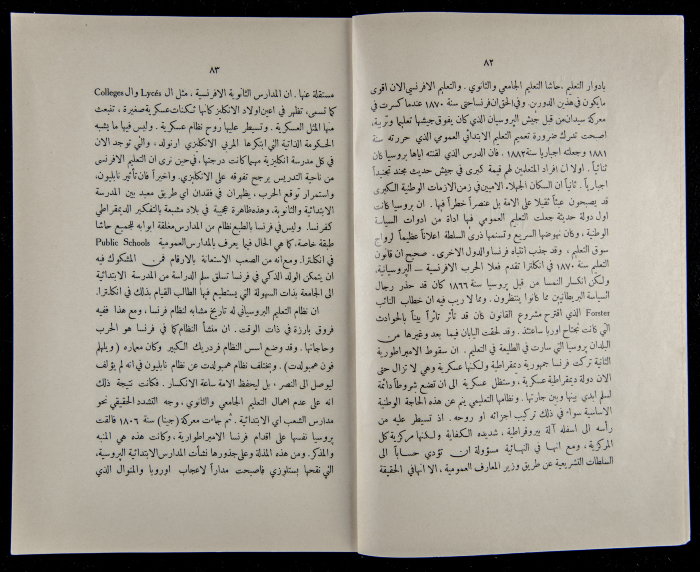 ٨٢
بادوار التعليم ،حاشا التعليم الجامعي والثانوي . والتعليم الافرنسي الان اقوى
ما يكون في هذين الدورين. وفي الحق ان فرنسا حتى سنة ١٨٧٠ عندما كسرت في
معركة سيدان من قبل جيش البروسيان الذي كان يفوق جيشها تعليما وتربية،
اضحت تدرك ضرورة تعميم التعليم الابتدائي العمومي الذي حررته سنة
١٨٨١ وجعلته اجباريا سنة ١٨٨٢. فان الدرس الذي لقنته اياها بروسيا كان
ثنائياً . اولا ان افراد المتعلمين لهم قيمة كبرى في جيش حديث مجند تجنيداً
اجبارياً . ثانياً ان السكان الجهلاء الاميين في زمن الازمات الوطنية الكبرى
قد يصبحون عبئاً ثقيلا على الامة بل عنصراً خطراً فيها . ان بروسيا كانت
اول دولة حديثة جعلت التعليم العمومي فيها اداة من ادوات السياسة
الوطنية ، وكان نهوضها السريع وتسنمها ذرى السلطة اعلاناً عظيماً لرواج
سوق التعليم . وقد جذب انتباه فرنسا والدول الاخرى . صحيح ان قانون
التعليم سنة ١٨٧٠ في انكلترا تقدم فعلا الحرب الافرنسية – البروسيانية.
ولكن انكسار النمسا من قبل بروسيا سنة ١٨٦٦ كان قد حذر رجال
السياسة البريطانيين مما كانوا ينتظرون . ومما لا ريب فيه ان خطاب النائب
Forster الذي اقترح مشروع القانون كان قد تأثر تأثراً بيناً بالحوادث
التي كانت تجتاح اوربا ساعتئذ . وقد لحقت اليابان فيما بعد وغيرها من
البلدان بروسيا التي سارت في الطليعة في التعليم . ان سقوط الامبراطورية
الثانية تركت فرنسا جمهورية ديمقراطية ولكنها عسكرية وهي لا تزال حتى
الان دولة ديمقراطية عسكرية ، وستظل عسكرية الى ان تضع شروطاً دائمة
لسلم ابدي بينها وبين جارتها . ونظامها التعليمي ينم عن هذه الحاجة الوطنية
الاساسية سواء في ذلك تركيب اجزائه او روحه . اذ تسيطر عليه من
رأسه الى اسفله آلة بيروقراطية ، شديده الكفاية ولكنها مركزية كل
المركزية ، ومع انها في النهائية مسؤولة ان تؤدي حساباً الى
السلطات التشريعية عن طريق وزير المعارف العمومية ، الا انها في الحقيقة
٨٣
مستقلة عنها . ان المدارس الثانوية الافرنسية ، مثل ال Lycés وال Colleges
كما تسمى، تظهر في اعين اولاد الانكليز كانها ثكنات عسكرية صغيرة ، تنبعث
منها المثل العسكرية . وتسيطر عليها روح نظام عسكرية . وليس فيها ما يشبه
الحكومة الذاتية التي ابتكرها المربي الانكليزي ارنولد ، والتي توجد الان
في كل مدرسة انكليزية مهما كانت درجتها ، في حين نرى ان التعليم الافرنسي
من ناحية التدريس يرجح تفوقه على الانكليزي. واخيراً فان تأثير نابليون،
واستمرار توقع الحرب ، يظهران في فقدان اي طريق معبد بين المدرسة
الابتدائية والثانوية. وهذه ظاهرة عجيبة في بلاد مشبعة بالتفكير الديمقراطي
كفرنسا . وليس في فرنسا بالطبع نظام من المدارس مغلقة ابوابه للجميع حاشا
طبقة خاصة، كما هي الحال فيما يعرف بالمدارس العمومية Public Schools
في انكلترا. ومع انه من الصعب الاستعانة بالارقام فمن المشكوك فيه
ان يتمكن الولد الذكي في فرنسا تسلق سلم الدراسة من المدرسة الابتدائية
الى الجامعة بذات السهولة التي يستطيع فيها الطالب القيام بذلك في انكلترا.
ان نظام التعليم البروسياني له تاريخ مشابه لنظام فرنسا ، ومع هذا ففيه
فروق بارزة في ذات الوقت . ان منشأ النظام كما في فرنسا هو الحرب
وحاجاتها . وقد وضع اسس النظام فردريك الكبير وكان معماره ( ويلهلم
فون همبولدت ) . ويختلف نظام همبولدت عن نظام نابليون في انه لم يؤلف
ليوصل الى النصر ، بل ليحفظ الامة ساعة الانكسار . فكانت نتيجة ذلك
انه على عدم اهمال التعليم الجامعي والثانوي ، وجه التشدد الحقيقي نحو
مدارس الشعب اي الابتدائية . ثم جاءت معركة (جينا) سنة ١٨٠٦ فالقت
بروسيا نفسها على اقدام فرنسا الامبراطوارية ، وكانت هذه هي المنبه
والمذكر. ومن هذه المذلة وعلى جذورها نشأت المدارس الابتدائية البروسية،
التي نقحها بستلوزي فاصبحت مداراً لاعجاب اوروبا والمنوال الذي